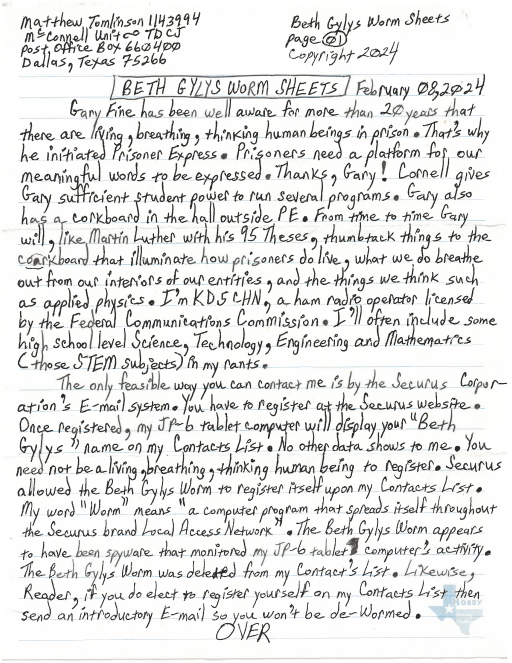 Matthew Tomlinson 1143994
McConnell Unit ∞ TDCJ
Post Office Box 660400
Dallas, Texas 75266
Beth Gylys Worm Sheets
page 01
Copyright 2024
BETH GYLYS WORM SHEETS February 08, 2024
Gary Fine has been well aware for more than 20 years that
there are living, breathing, thinking human beings in prison. That's why
he initiated Prisoner Express. Prisoners need a platform for our
meaningful words to be expressed. Thanks, Gary! Cornell gives
Gary sufficient student power to run several programs. Gary also
has a corkboard in the hall outside PE. From time to time Gary
will, like Martin Luther with his 95 Theses, thumbtack things to the
corkboard that illuminate how prisoners do live, what we do breathe
out from our interiors of our entities, and the things we think such
as applied physics. I'm KD5CHN, a ham radio operator licensed
by the Federal Communications Commission. I'll often include some
high school level Science, Technology, Engineering and Mathematics
(those STEM subjects) in my rants.
The only feasible way you can contact me is by the Securus Corpor-
ation's E-mail system. You have to register at the Securus website.
Once registered, my JP-6 tablet computer will display your "Beth
Gylys" name on my Contacts List. No other data shows to me. You
need not be a living, breathing, thinking human being to register. Securus
allowed the Beth Gylys Worm to register itself upon my Contacts List.
My word "Worm" means "a computer program that spreads itself throughout
the Securus brand Local Access Network". The Beth Gylys Worm appears
to have been spyware that monitored my JP-6 tablet computer's activity.
The Beth Gylys Worm was deleted from my Contact's List. Likewise,
Reader, if you do elect to register yourself on my Contacts List then
send an introductory E-mail so you won't be de-Wormed.
OVER